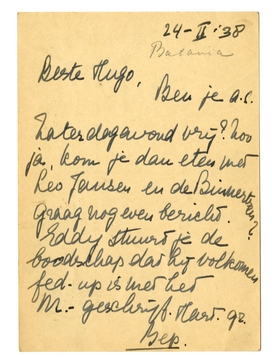 24-II-'38
Batavia
Beste Hugo,
Ben je a.s.
Zaterdagavond vrij? Zoo
ja, kom je dan eten met
Leo Jansen en de Binnertsen?
graag nog even bericht.
Eddy stuurt je de
boodschap dat hij volkomen
fed-up is met het
M.-geschrijf. Hart. gr.
Bep.